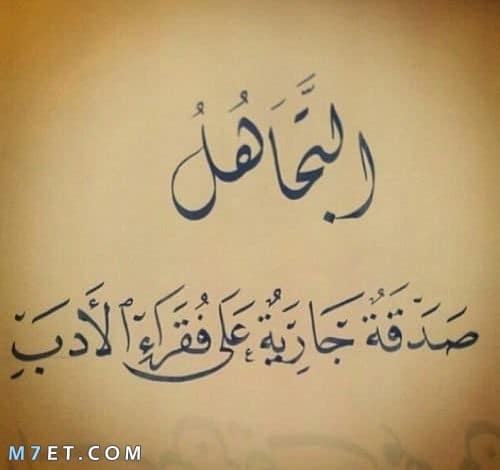 التَّجَاهُلُ
صَدَقَةٌ جَارِيَةٌ عَلَى فُقَرَاءِ الأَدَبِ
M7ET.COM